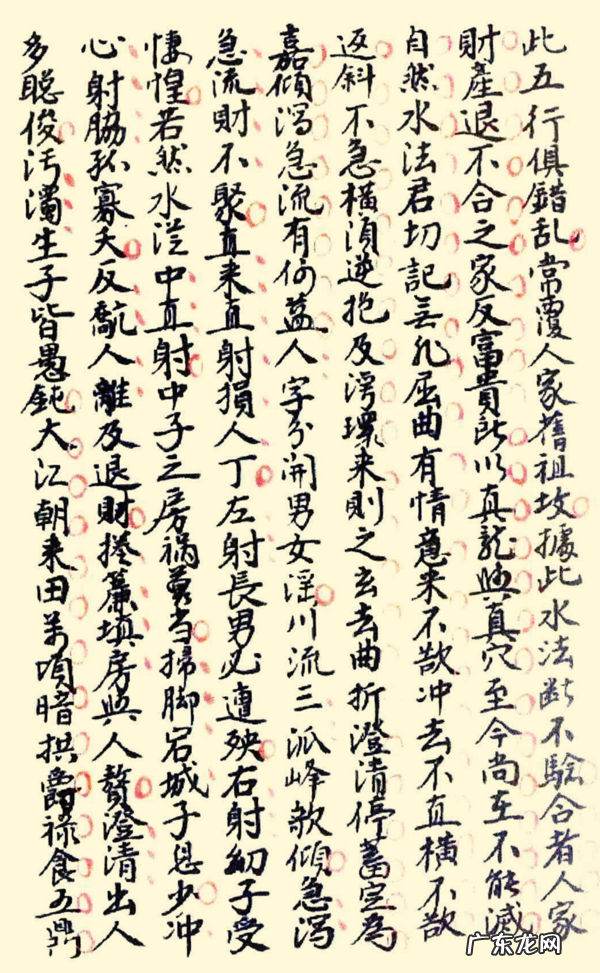 此五行俱錯乱常覆人家舊祖坟據此水法断不驗合者人家
財產退不合之家反富貴所以真龍與真穴至今尚在不能滅
自然水法君切記無非屈曲有情意来不欲冲去不直横不欲
返斜不急横須逆抱及湾環来則之玄去曲折澄清停蓄定為
嘉傾瀉急流有何益人字分開男女淫川流三派峰欹傾急瀉
急流財不聚直来直射損人丁左射長男必遭殃右射幼子受
悽惶若然水從中直射中子之房禍當掃脚岩城子息少冲
心射脇孤寡夭反亂人離及退財捲簾填房與人贅澄清出人
多聰俊汚濁生子皆愚鈍大江朝来田萬頃暗拱爵禄食五鼎
广东龙网